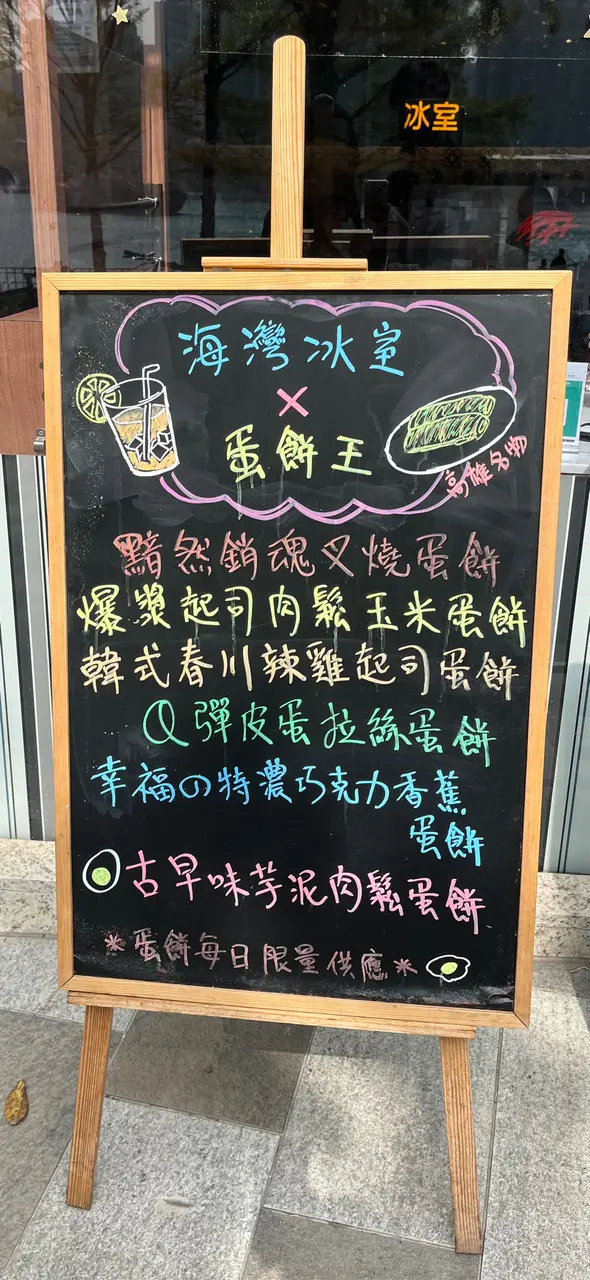 冰室
海灣冰室
×
蛋餅王
高雄名物
黯然銷魂叉燒蛋餅
爆漿起司肉鬆玉米蛋餅
韓式春川辣雞起司蛋餅
Q彈皮蛋拉絲蛋餅
幸福の特濃巧克力香蕉
蛋餅
古早味芋泥肉鬆蛋餅
*蛋餅每日限量供應*